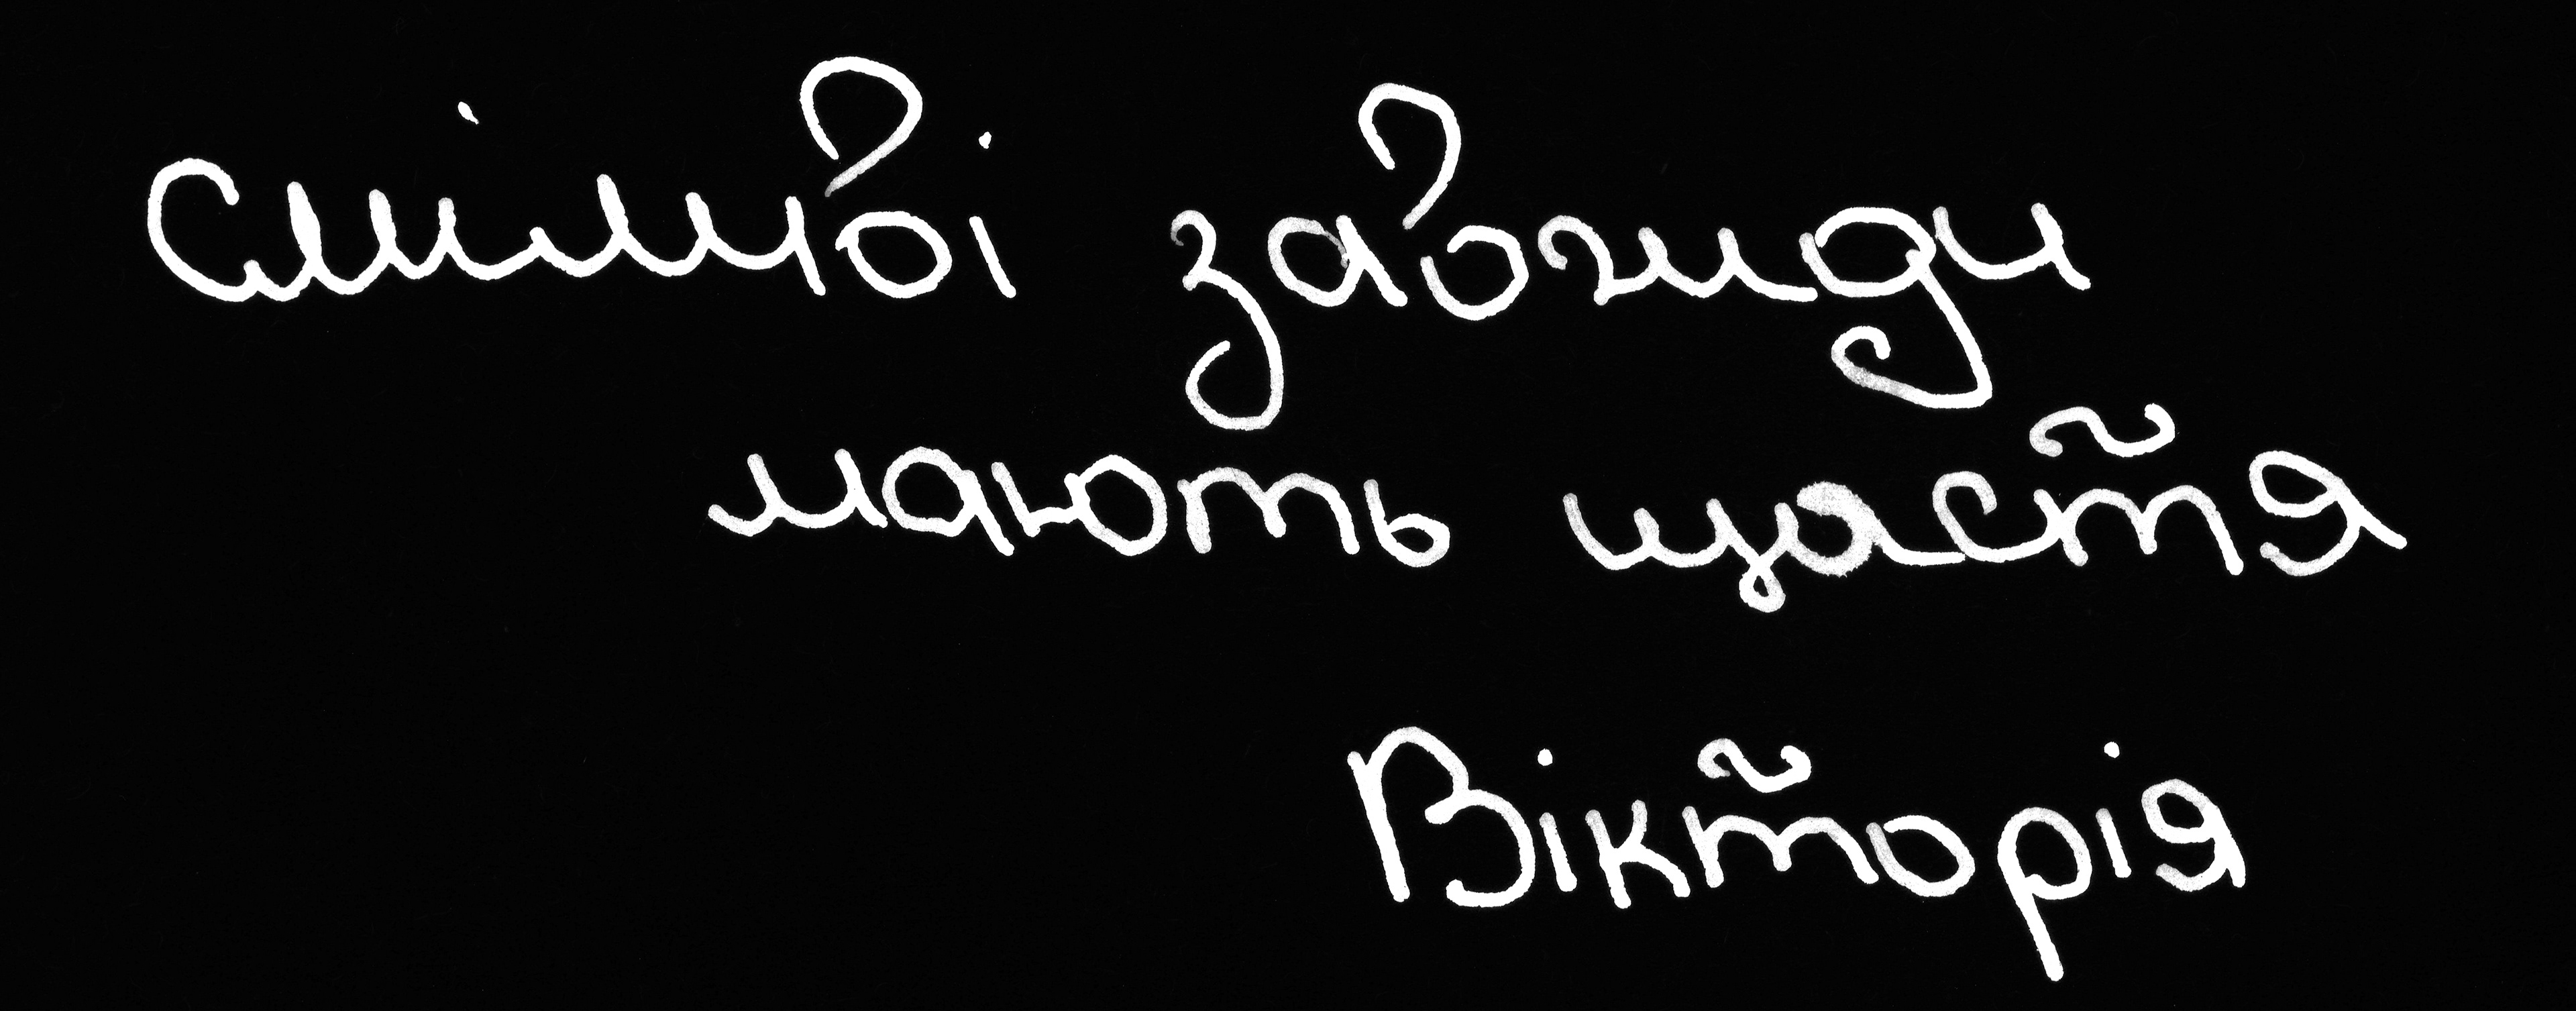 сміливі завжди
мають щастя
Вікторія